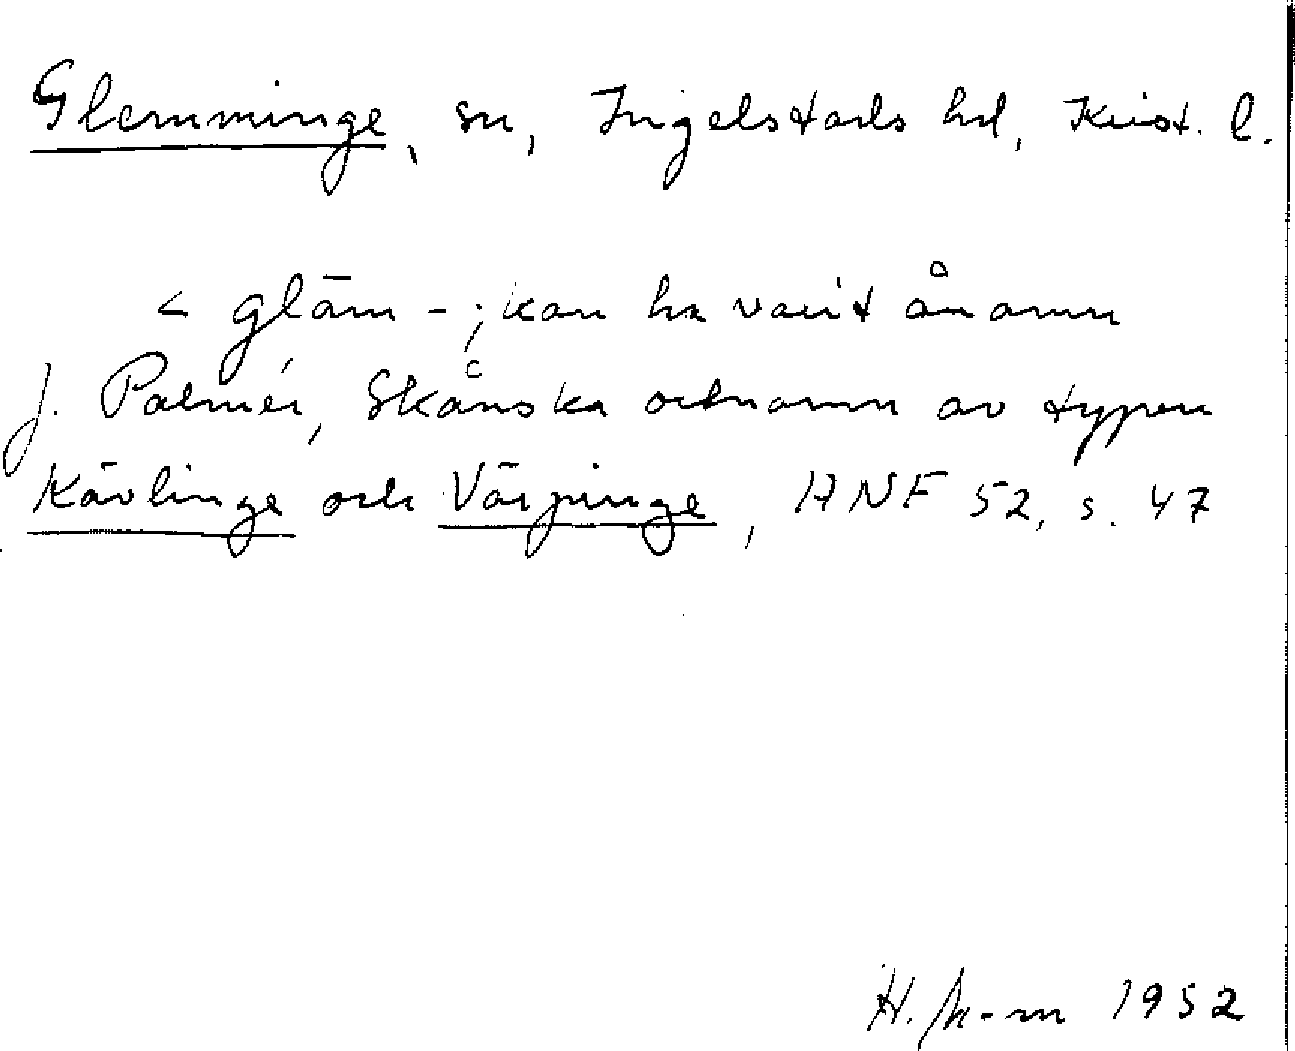 Glemminge, sn, Ingelstads hd, Krist. l.
< gläm - ; kan ha varit ånamn
J. Palmér, Skånska ortnamn av typen
Kävlinge och Värpinge, HNF 52, s. 47
H. 1952